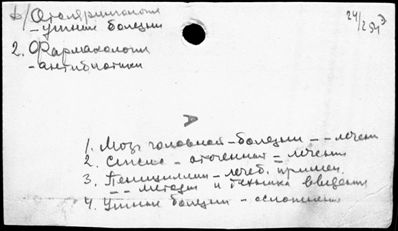 b/ Отоляринголог
24/2543
– ушные болезни
2. Фармакология
– антибиотики
A
1. Мозг головной – болезни – – лечен
2. Сепсис – отогенный = лечение
3. Пенициллин – лечеб. примен.
– – методы и техника введения
4. Ушные болезни – осложнения